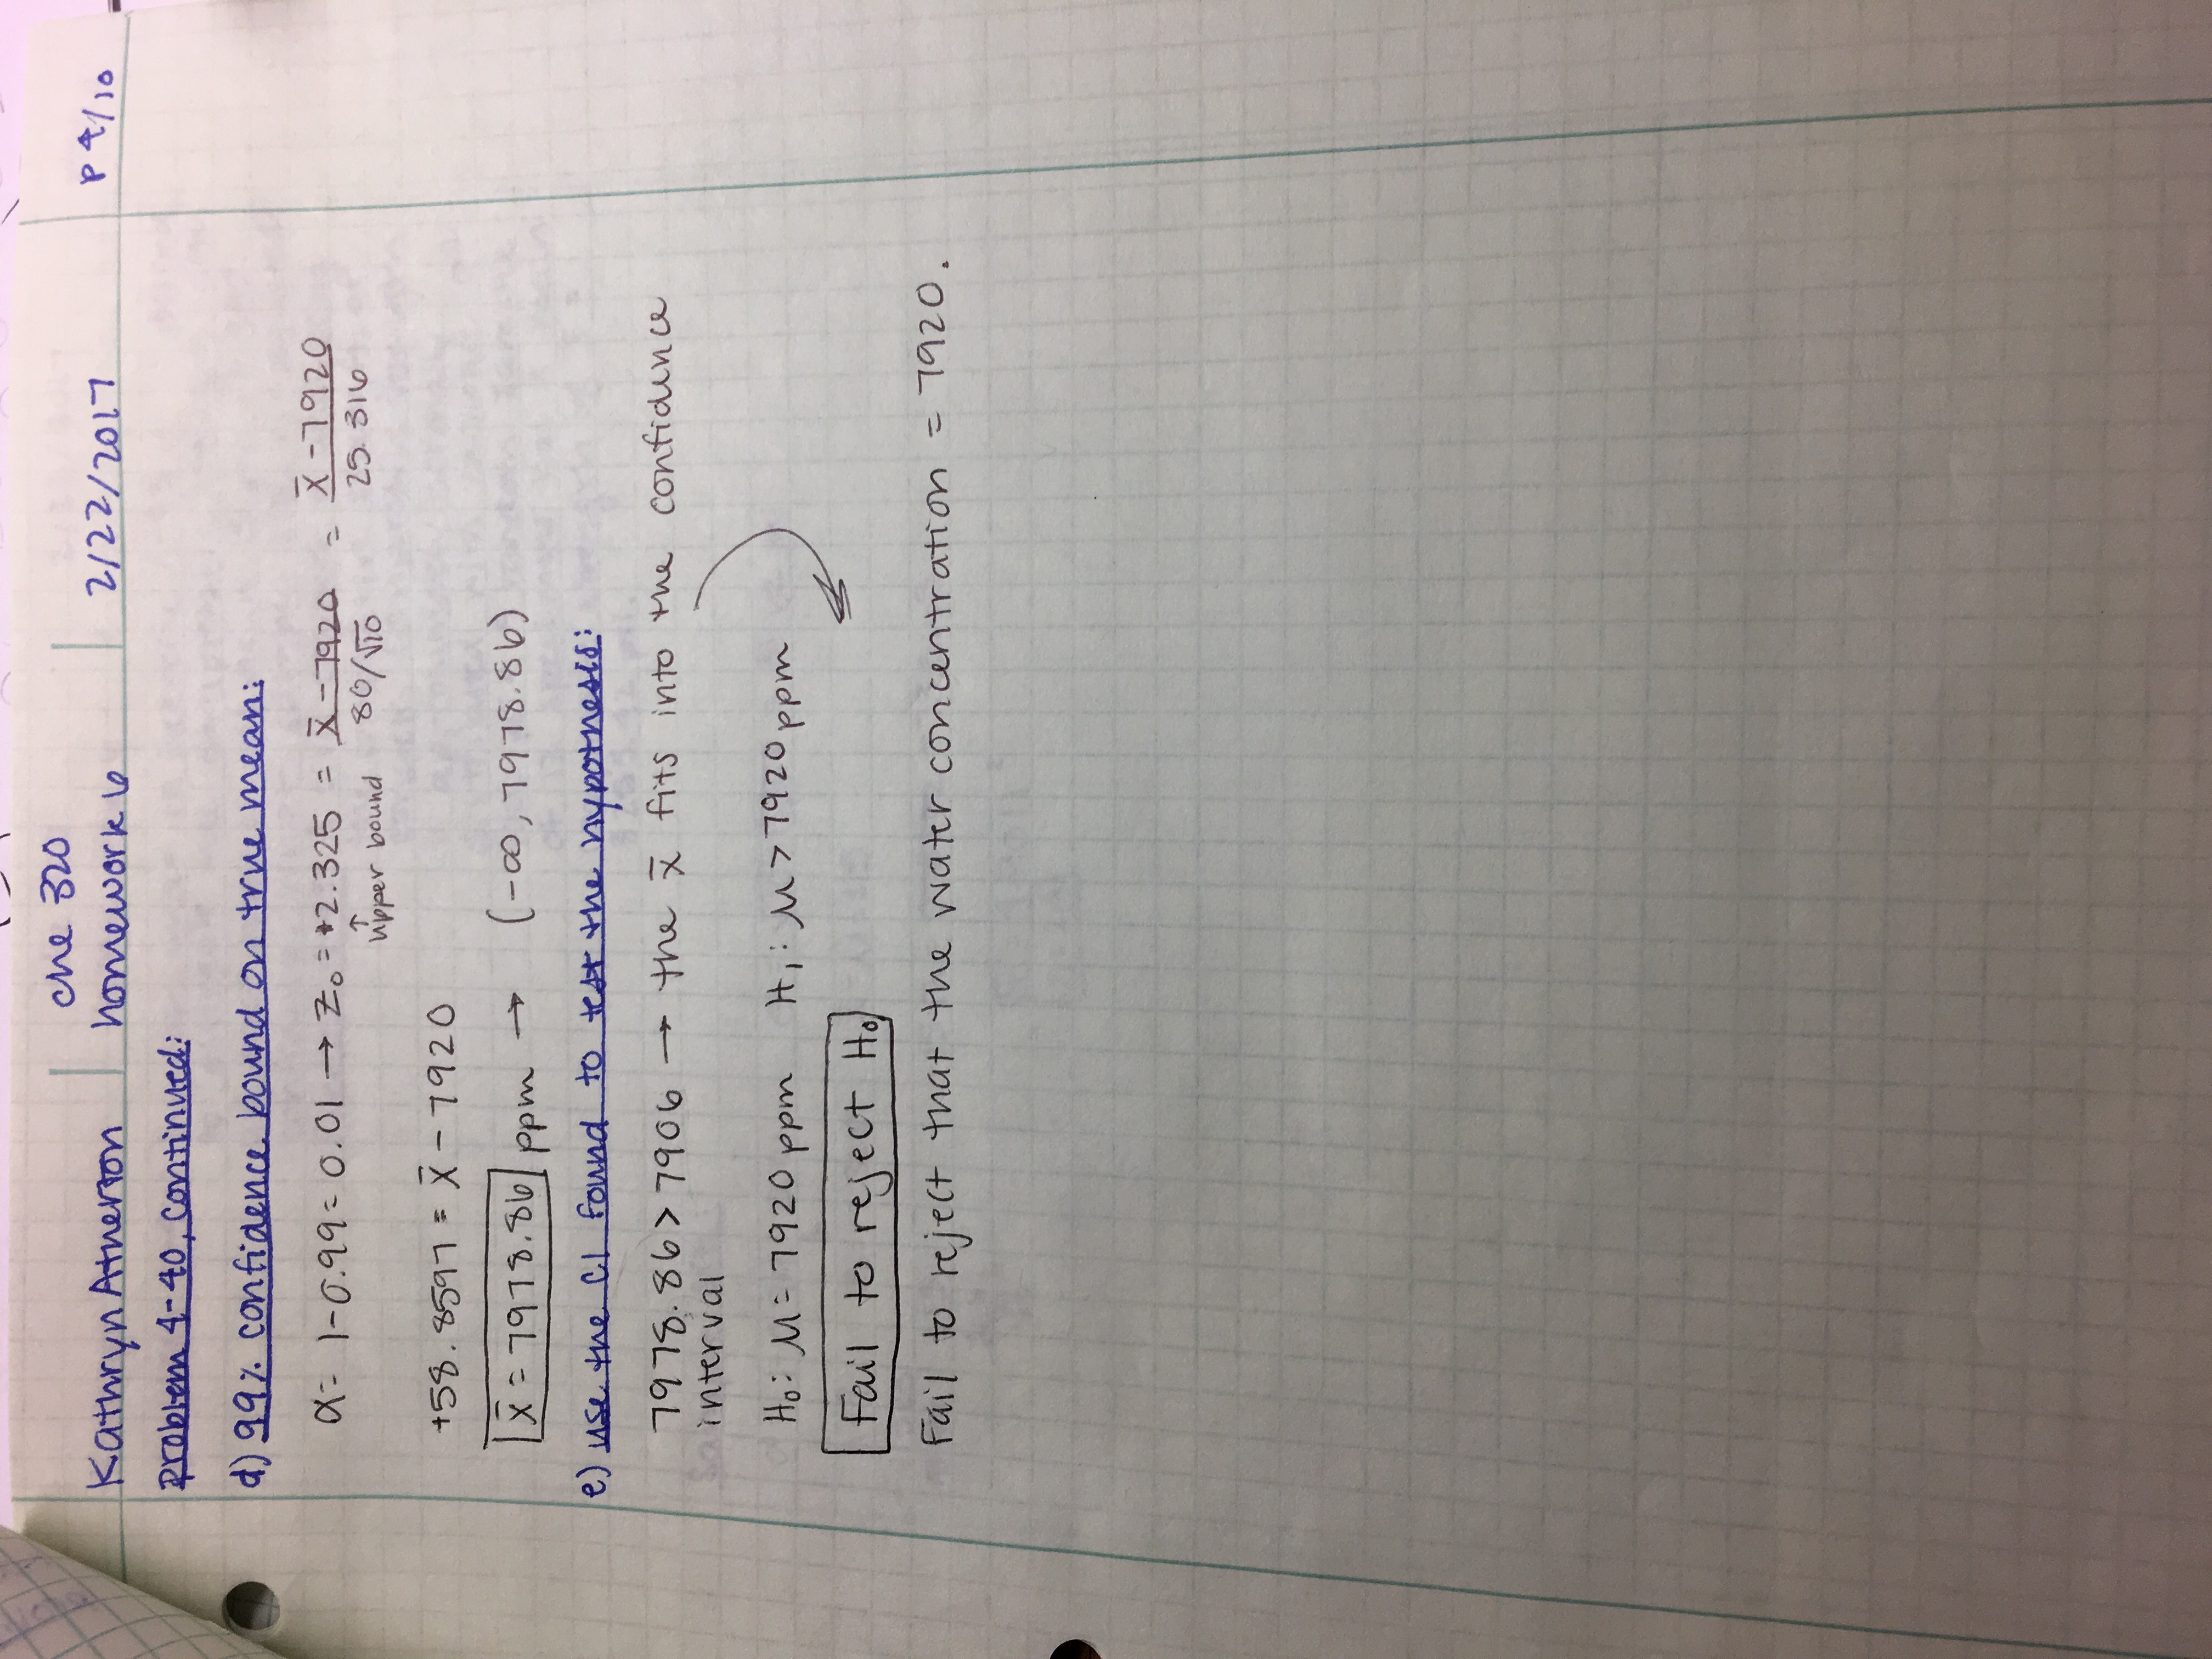 che 320
Kathryn Atherton homework 6 2/22/2017 P 4/10
Problem 4-40, continued:
d) 99% confidence bound on true mean:
α = 1-0.99 = 0.01 → Z₀ = +2.325 = x̄ - 7920 / 80/√10 = x̄ - 7920 / 25.316
↑ upper bound
+58.8597 = x̄ - 7920
x̄ = 7978.86 ppm → (-∞, 7978.86)
e) use the CI found to test the hypothesis:
7978.86 > 7906 → the x̄ fits into the confidence
interval
H₀: μ = 7920 ppm H₁: μ > 7920 ppm
Fail to reject H₀
Fail to reject that the water concentration = 7920.